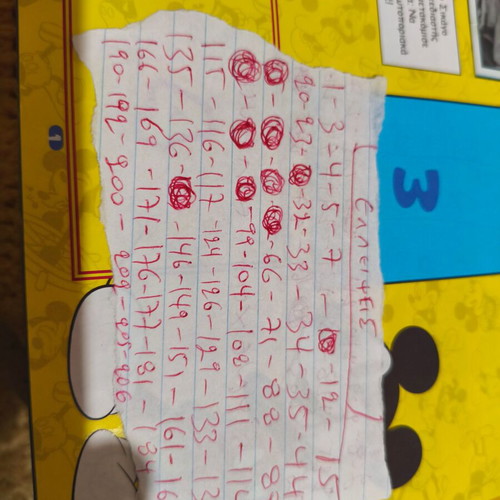 ΕΛΛΕΙΨΕΙΣ
1-3-4-5-7-12-15
20-23-32-33-34-35-44
66-71-88-8
99-104-108-111-114
115-116-117-124-126-129-133-13
135-136-146-149-151-161-16
166-169-171-176-177-181-184
190-192-200-202-203-206
3
1